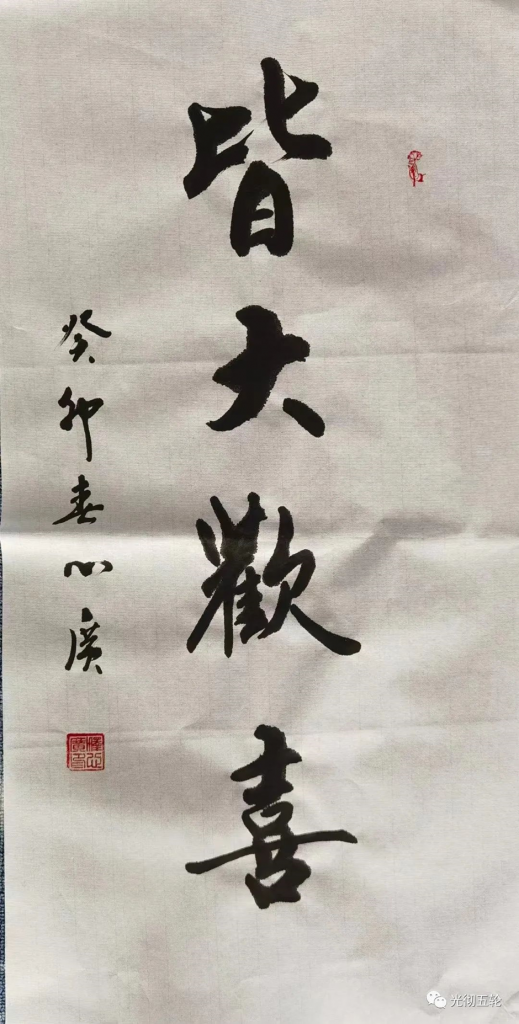 皆大歡喜
癸卯春心廣
光彻五轮